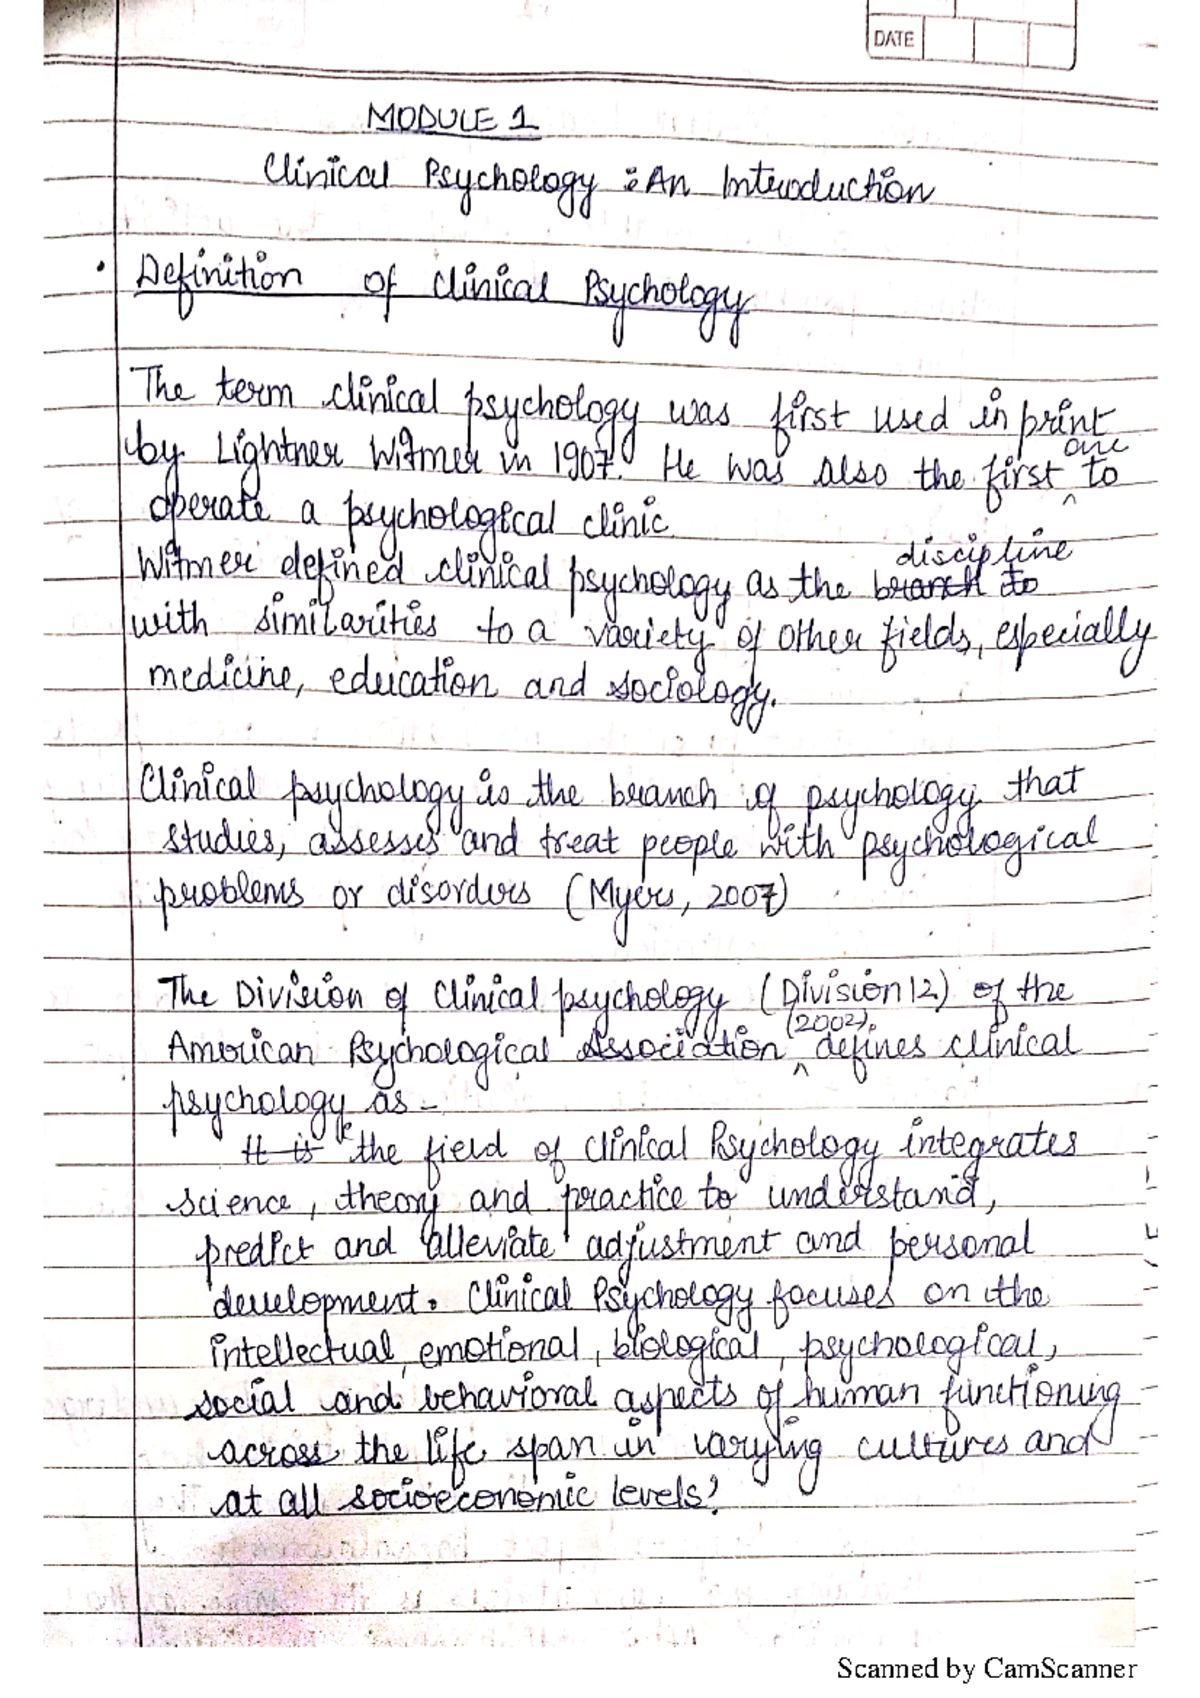 DATE
MODULE 1
Clinical Psychology : An Introduction
• Definition of Clinical Psychology
The term clinical psychology was first used in print
by Lightner Witmer in 1907. He was also the first one to
operate a psychological clinic.
Witmer defined clinical psychology as the branch to discipline
with similarities to a variety of other fields, especially
medicine, education and sociology.
Clinical psychology is the branch of psychology that
studies, assesses and treat people with psychological
problems or disorders (Myers, 2007)
The Division of Clinical psychology (Division 12) of the
American Psychological Association (2002), defines clinical
psychology as -
It is "the field of Clinical Psychology integrates
science, theory and practice to understand,
predict and alleviate adjustment and personal
development. Clinical Psychology focuses on the
intellectual, emotional, biological, psychological,
social and behavioral aspects of human functioning
across the life span in varying cultures and
at all socioeconomic levels."
Scanned by CamScanner